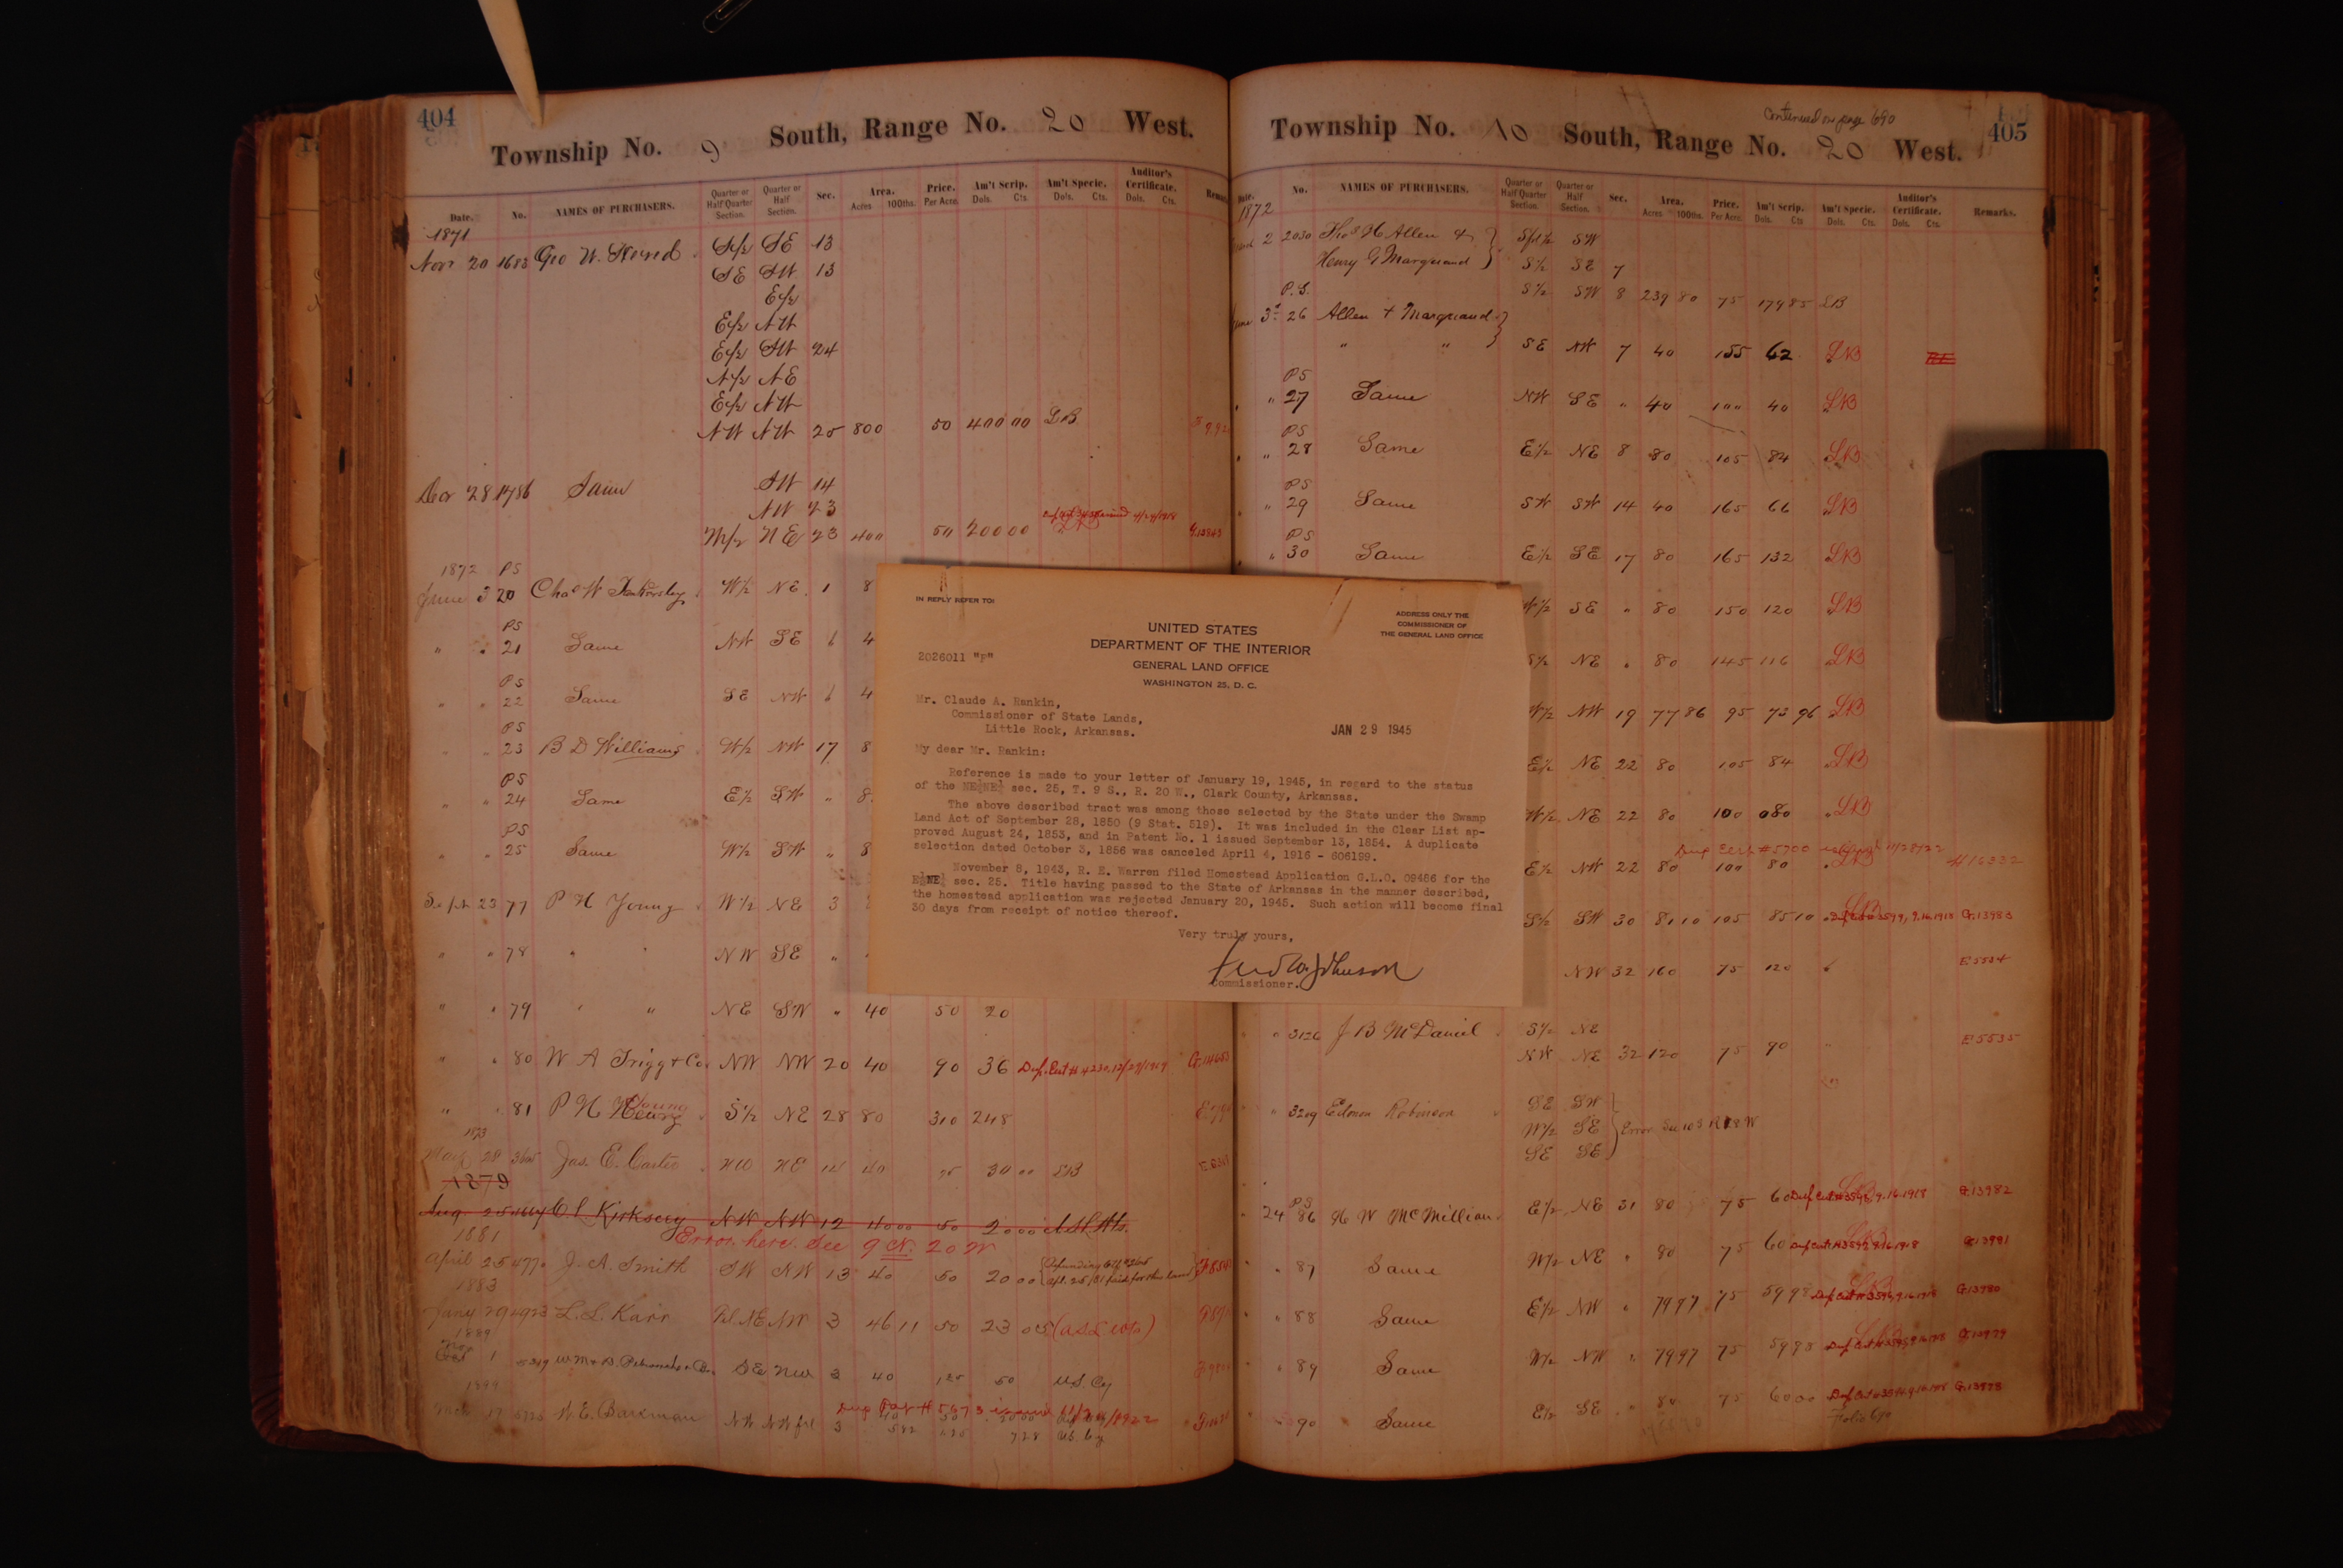 404
Township No. 9 South, Range No. 20 West.
Date. No. NAMES OF PURCHASERS. Quarter or Half Quarter Section. Quarter or Half Section. Sec. Area. Acres 100ths. Price. Per Acre. Am't Scrip. Dols. Cts. Am't Specie. Dols. Cts. Auditor's Certificate. Dols. Cts.
1871
Nov 20 1683 Geo W. S½ SE 13
SE SW 13
E½
E½ NW
E½ SW 24
N½ NE
E½ NW
NW NW 25 800 50 400 00 LB
Dec 28 1786 Same SW 14
NW 23
W½ NE 23 400 50 200 00
1872 PS
June 3 20 Chas W Tankersley W½ NE 1 8
PS
" " 21 Same NW SE 6 4
PS
" " 22 Same SE NW 6 4
PS
" " 23 B D Williams W½ NW 17 8
PS
" " 24 Same E½ SW " 8
PS
" " 25 Same W½ SW " 8
Sept 23 77 P H Young W½ NE 3
" " 78 " " NW SE "
" " 79 " " NE SW " 40 50 20
" " 80 W A Trigg & Co. NW NW 20 40 90 36 Dup. Cert # 4230. 12/29/1919
" " 81 P H Young S½ NE 28 80 310 248
1873
28 Jas. E. NW NE 14 40 75 30 00 LB
1879
Aug 25 C L Kirksey NW NW 12 40 00 50 20 00
Error here. See 9 N. 20 W
1881
April 25 4770 J. A. Smith SW NW 13 40 50 20 00
1883
Jany 29 4923 L. L. Karr NE NW 3 46 11 50 23 05
1889
Oct 1 SE NW 3 40 125 50 U.S. Cy
1899
17 W. E. Barkman NW NW frl 3 582 125 728 US. Cy
Dup Pat # 5673 issued
405
Continued on page 690
Township No. 10 South, Range No. 20 West.
Date. No. NAMES OF PURCHASERS. Quarter or Half Quarter Section. Quarter or Half Section. Sec. Area. Acres 100ths. Price. Per Acre. Am't Scrip. Dols. Cts Am't Specie. Dols. Cts. Auditor's Certificate. Dols. Cts. Remarks.
1872
2 2030 Thos H Allen & SW
Henry G Marquand S½ SE 7
S½ SW 8 239 80 75 179 85 LB
P.S.
June 3d 26 Allen & Marquand
" " SE NW 7 40 155 62 LB
PS
" 27 Same NW SE " 40 100 40 LB
PS
" 28 Same E½ NE 8 80 105 84 LB
PS
" 29 Same SW SW 14 40 165 66 LB
PS
" 30 Same E½ SE 17 80 165 132 LB
W½ SE " 80 150 120 LB
S½ NE " 80 145 116 LB
W½ NW 19 77 86 95 73 96 LB
E½ NE 22 80 105 84 LB
W½ NE 22 80 100 80 LB
Dup Cert # 5700 11/28/22
E½ NW 22 80 100 80 H 16332
S½ SW 30 81 10 105 85 10 9.16.1918 G.13983
NW 32 160 75 120 E 5534
" 3126 J B McDaniel S½ NE
NW NE 32 120 75 90 " E 5535
" 3209 Edmon Robinson SE SW
W½ SE Error See 10 S R 18 W
SE SE
PS
24 86 H W McMillian E½ NE 31 80 75 60 9.16.1918 G.13982
" 87 Same W½ NE " 80 75 60 G.13981
" 88 Same E½ NW " 79 97 75 59 98 G.13980
" 89 Same W½ NW " 79 97 75 59 98 G.13979
" 90 Same E½ SE " 80 75 60 00 G.13978
IN REPLY REFER TO:
ADDRESS ONLY THE
COMMISSIONER OF
THE GENERAL LAND OFFICE
UNITED STATES
DEPARTMENT OF THE INTERIOR
GENERAL LAND OFFICE
WASHINGTON 25, D. C.
2026011 "F"
Mr. Claude A. Rankin,
Commissioner of State Lands,
Little Rock, Arkansas.
JAN 29 1945
My dear Mr. Rankin:
Reference is made to your letter of January 19, 1945, in regard to the status
of the NE¼NE¼ sec. 25, T. 9 S., R. 20 W., Clark County, Arkansas.
The above described tract was among those selected by the State under the Swamp
Land Act of September 28, 1850 (9 Stat. 519). It was included in the Clear List ap-
proved August 24, 1853, and in Patent No. 1 issued September 13, 1854. A duplicate
selection dated October 3, 1856 was canceled April 4, 1916 - 606199.
November 8, 1943, R. E. Warren filed Homestead Application G.L.O. 09486 for the
E½NE¼ sec. 25. Title having passed to the State of Arkansas in the manner described,
the homestead application was rejected January 20, 1945. Such action will become final
30 days from receipt of notice thereof.
Very truly yours,
Fred W. Johnson
Commissioner.